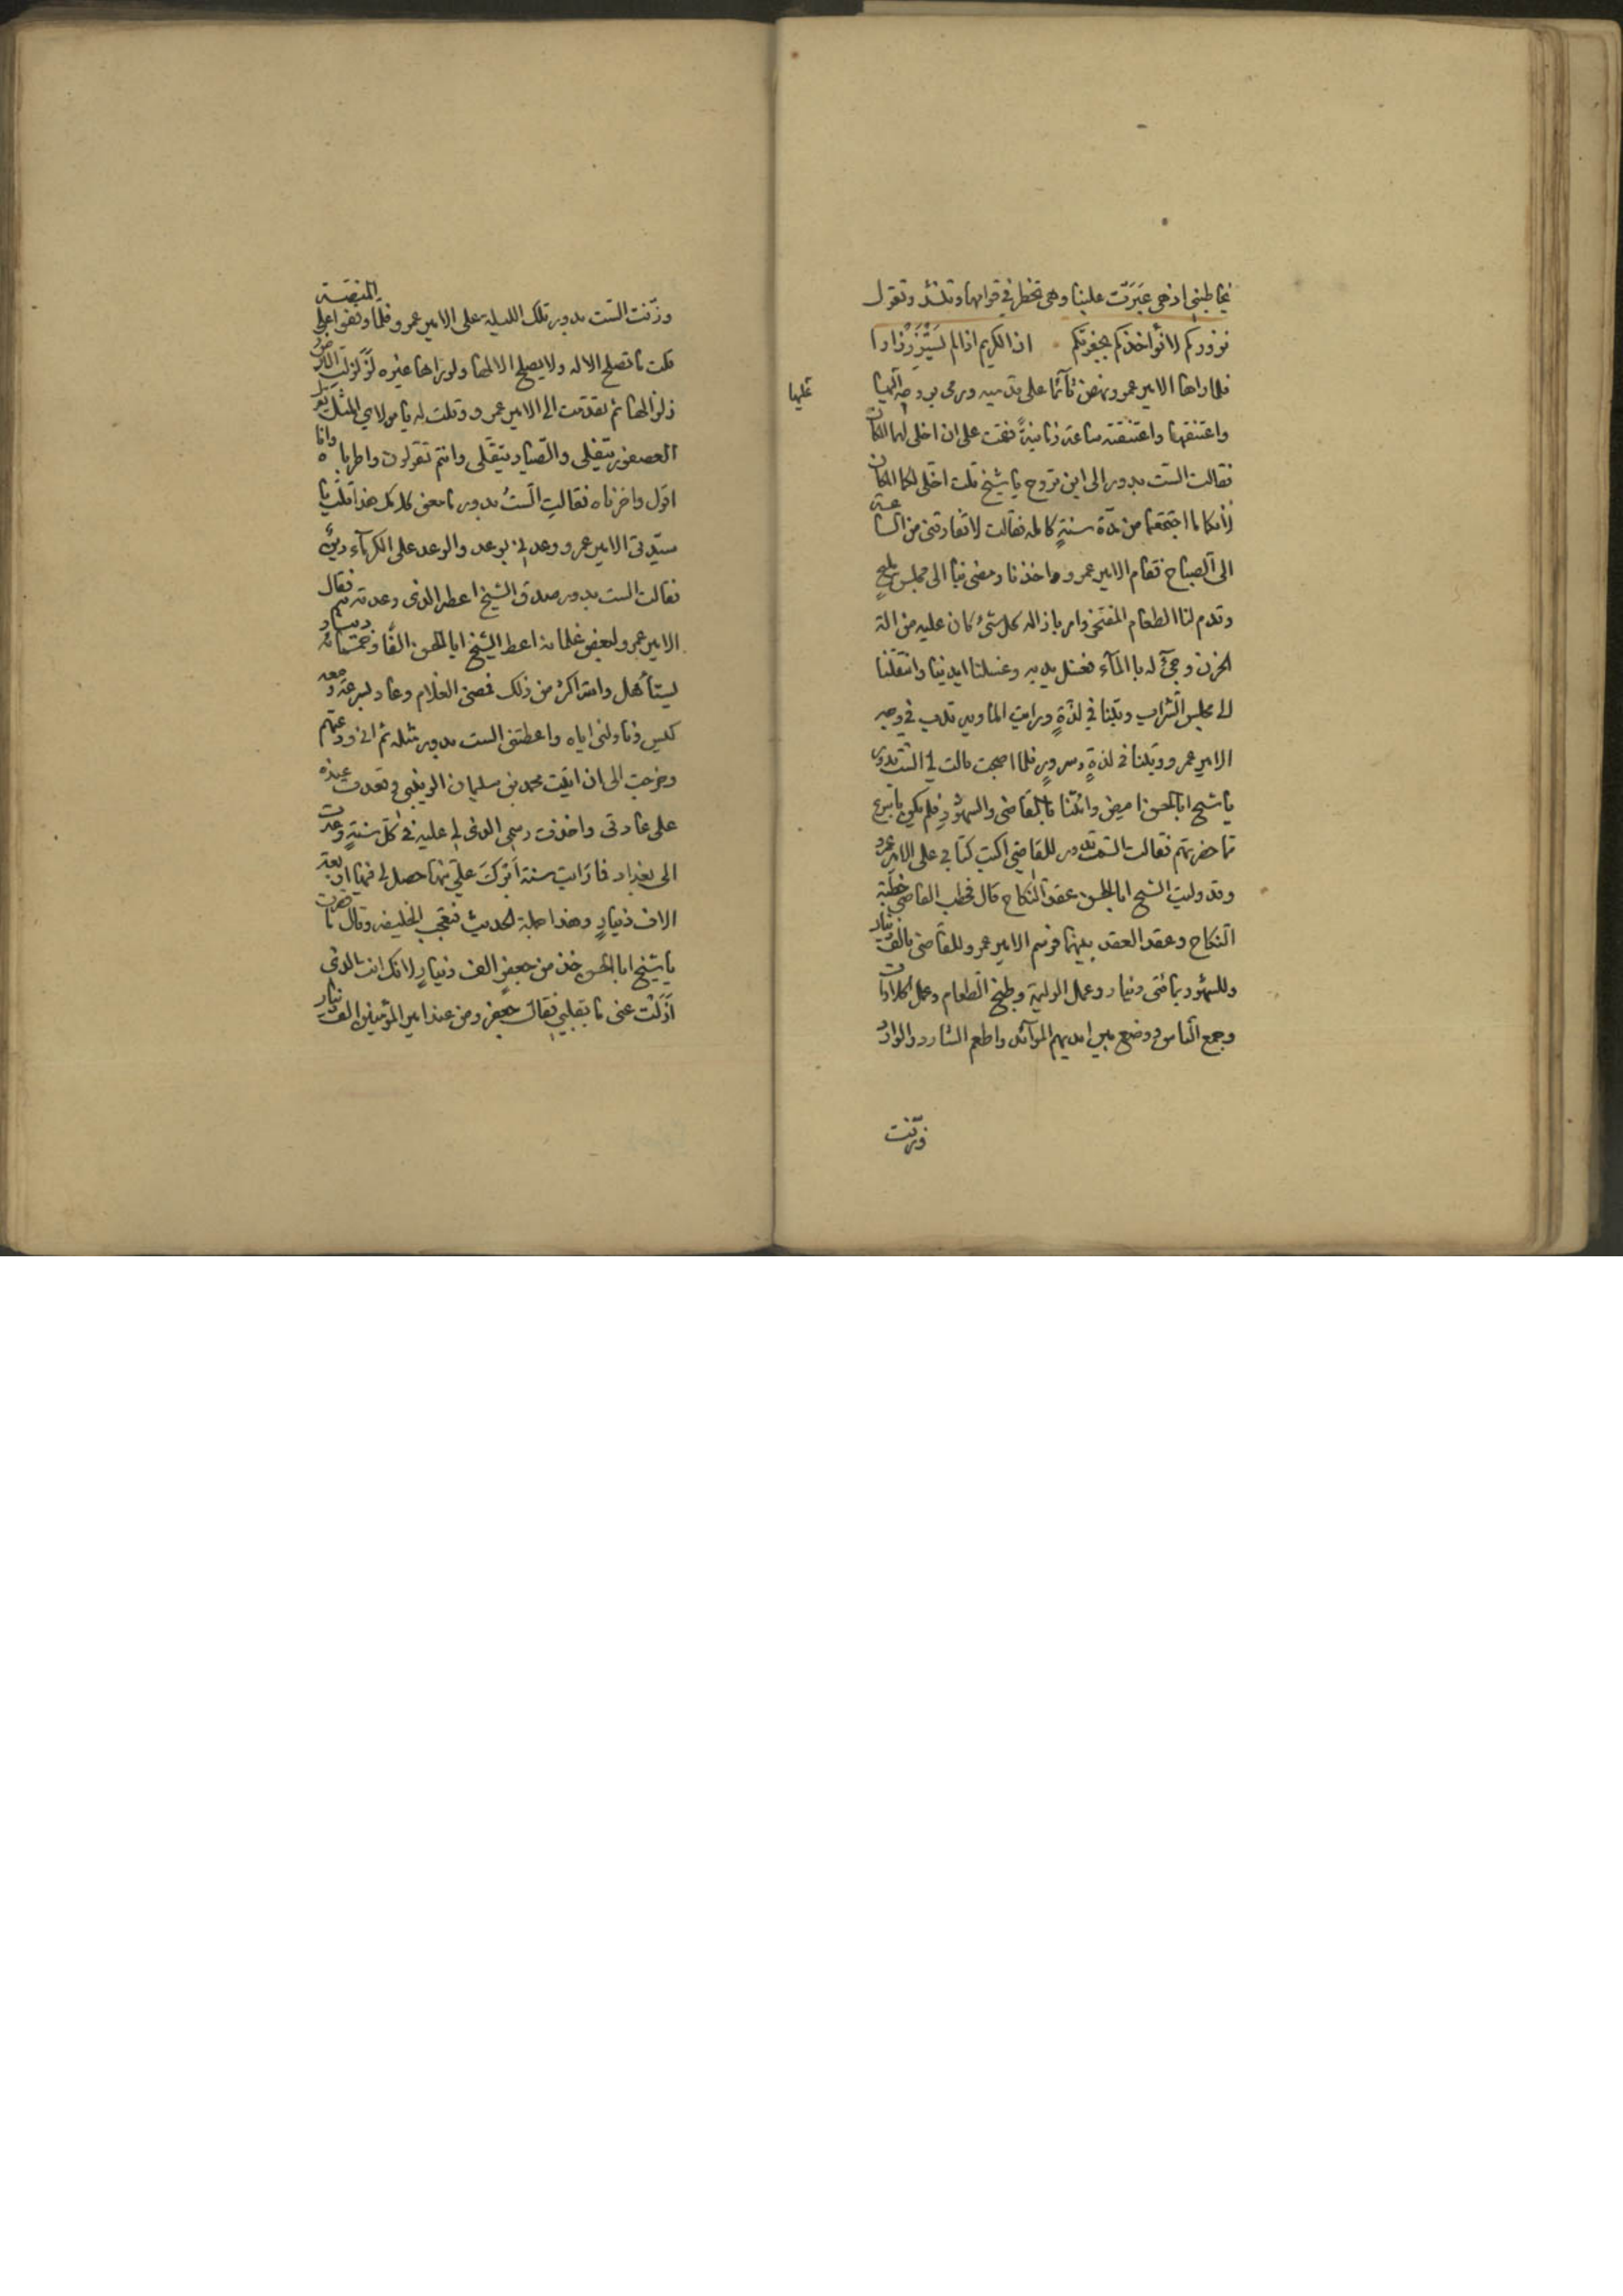 يخاطبني اذ هي عَبَرَت علينا وهي تخطر في قوامها وتنشد وتقول
نزوركم لا نؤاخذكم بجفوتكم ۰ ان الكريم اذا لم يُستَزَرْ زارا
فلما راها الامير عمرو نهض قآئما على قدميه ورمى بروحه اليها
عليها
واعتنقها واعتنقته ساعة زمانيةً فقمت على ان اخلى لهما المكان
فقالت الست بدور الى اين تروح يا شيخ قلت اخلى لكما المكان
لأنكما ما اجتمعتما من مدّة سنةٍ كاملة فقالت لا تفارقنى من الساعة
الى الصباح فقام الامير عمرو واخذنا ومضى بنا الى مجلس مليحٍ
وقدم لنا الطعام المفتخر وامر بازاله كل شئ كان عليه من الة
الحزن وجئ له بالمآء فغسل يديه وغسلنا ايدينا وانتقلنا
الى مجلس الشراب وبتنا في لذةٍ ورايت الماورد تلعب في وجه
الامير عمرو وبتنا في لذةٍ وسرورٍ فلما اصبحت قالت لي الست بدور
يا شيخ ابا الحسن امض وائتنا بالقاضى والشهود فلم يكن باسرع
ما حضرتهم فقالت الست بدور للقاضي اكتب كتابي على الامير عمرو
وقد وليت الشيخ ابا الحسن عقد النكاح قال فخطب القاضى خطبة
النكاح وعقد العقد بينهما فرسم الامير عمرو للقاضى بالف دينار
وللشهود بمائتى دينار وعمل الوليمة وطبخ الطعام وعمل الحلاوات
وجمع الناس ووضع بين ايديهم الموآئد واطعم الشارد والوارد
وزُفّت
وزُفّت الست بدور تلك الليلة على الامير عمرو فلمّا وقفوا على المنصّة
قلت ما تصلح الا له ولا يصلح الا لها ولو رامها غيره لَزُلزلت الارض
زلزالها ثم تقدّمت الى الامير عمرو وقلت له يا مولاي المثل يقول
العصفور يتفلى والصّياد يتقلى وانتم تقولون واطرباه وانا
اقول واحزناه فقالت الستُ بدور ما معنى كلامك هذا قلت يا
سيّدتى الامير عمرو وعدني بوعد والوعد على الكرمآء دينٌ
فقالت الست بدور صدق الشيخ اعطه الذى وعدته به فقال
الامير عمرو لبعض غلمانه اعط الشيخ ابا الحسن الفًا وخمسمائة دينار
ليستأهل واشد اكثر من ذلك فمضى الغلام وعاد بسرعة ومعه
كيس وناولنى اياه واعطتنى الست بدور مثله ثم انى ودّعتهم
وخرجت الى ان اتيت محمد بن سليمان الزينبى وقعدت عنده
على عادتى واخذت رسمي الذى لي عليه في كلّ سنةٍ وعدت
الى بغداد فما رَايت سنة اَبْركَ عليّ منها حصل لي فيها اربعة
الاف دينارٍ وهذا جملة الحديث فتعجب الخليفه وقال
يا شيخ ابا الحسن خذ من جعفرٍ الف دينارٍ لانك انت الذى
اَزَلْتَ عنى ما بقلبي فقال جعفر ومن عند امير المؤمنين الف دينار